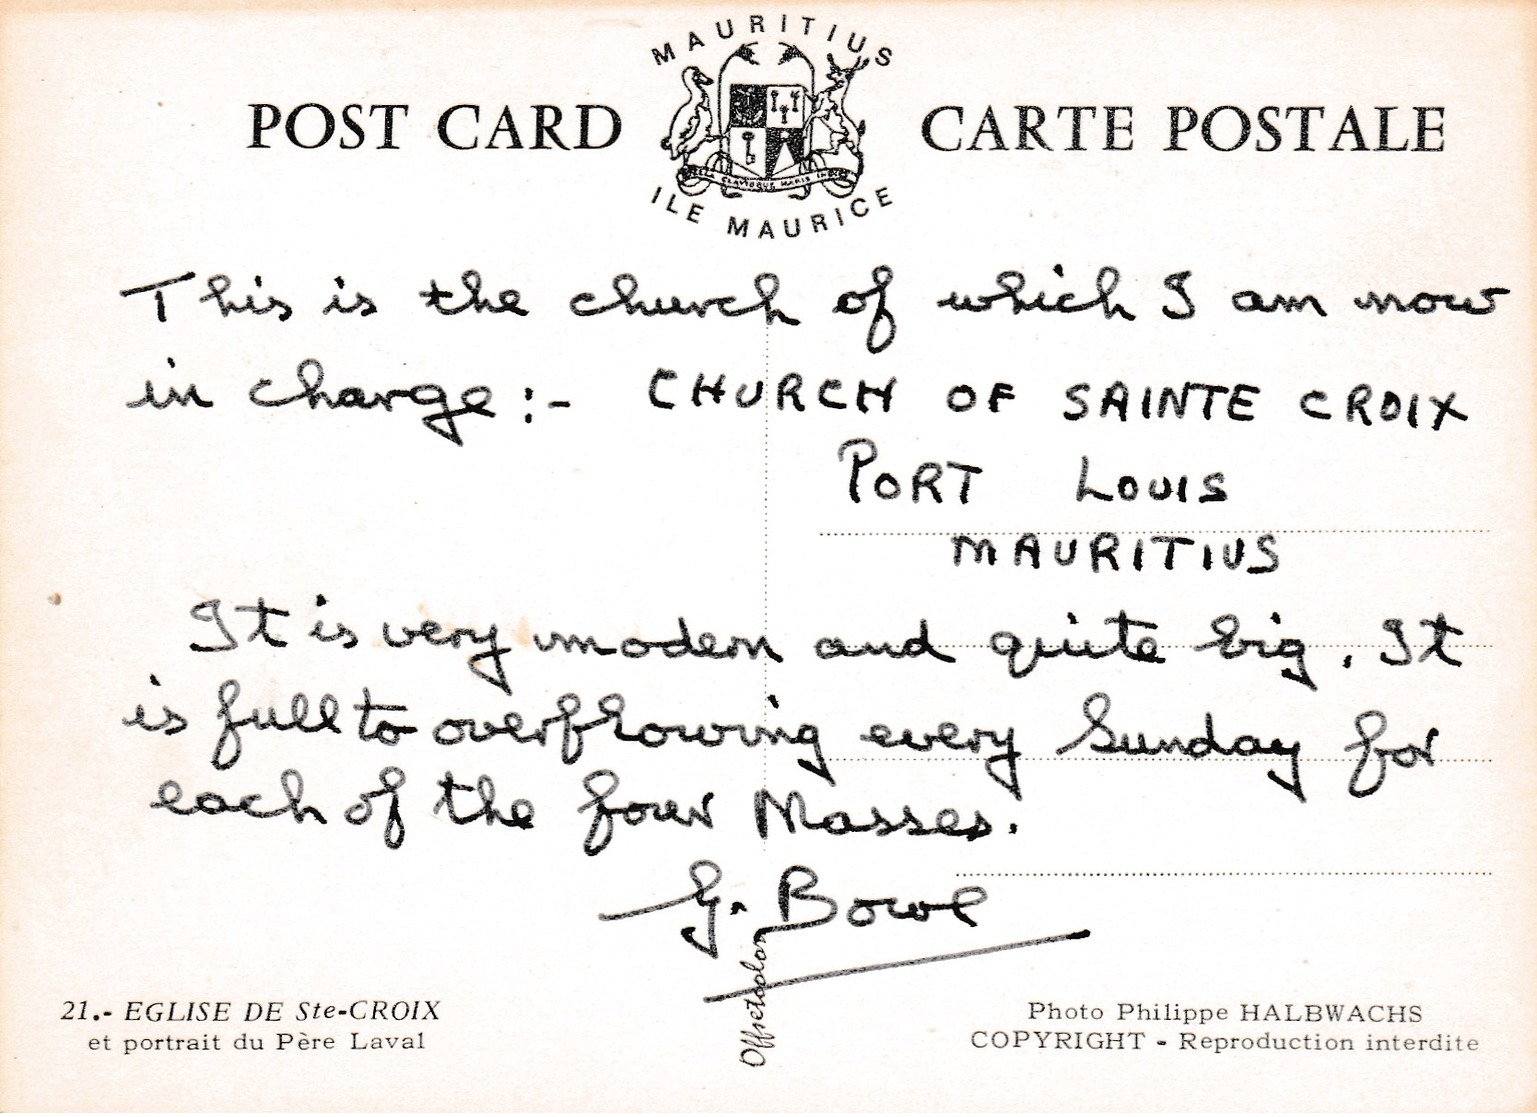 MAURITIUS
POST CARD CARTE POSTALE
ILE MAURICE
This is the church of which I am now
in charge :- CHURCH OF SAINTE CROIX
PORT LOUIS
MAURITIUS
It is very modern and quite big. It
is full to overflowing every Sunday for
each of the four Masses.
G. Bowe
Offsetcolor
21.- EGLISE DE Ste-CROIX
et portrait du Père Laval
Photo Philippe HALBWACHS
COPYRIGHT - Reproduction interdite